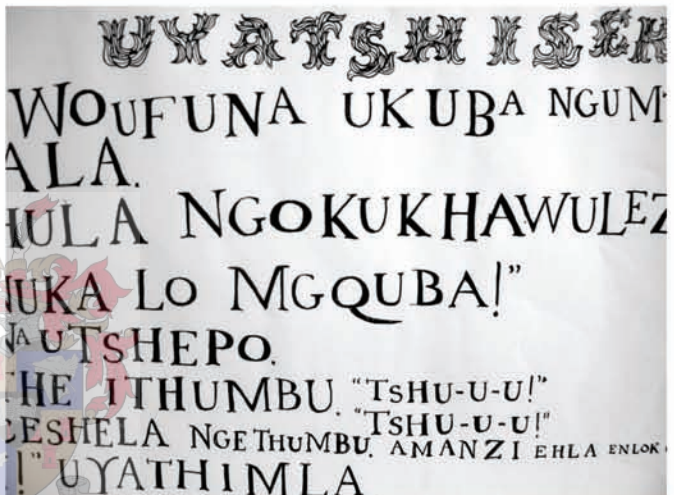 UYATSHISEK
WOUFUNA UKUBA NGUM
ALA.
HULA NGOKUKHAWULEZ
NUKA LO MGQUBA!"
NA UTSHEPO.
CHE ITHUMBU. "TSHU-U-U!"
"TSHU-U-U!"
CESHELA NGETHUMBU. AMANZI EHLA ENLOK
!" UYATHIMLA